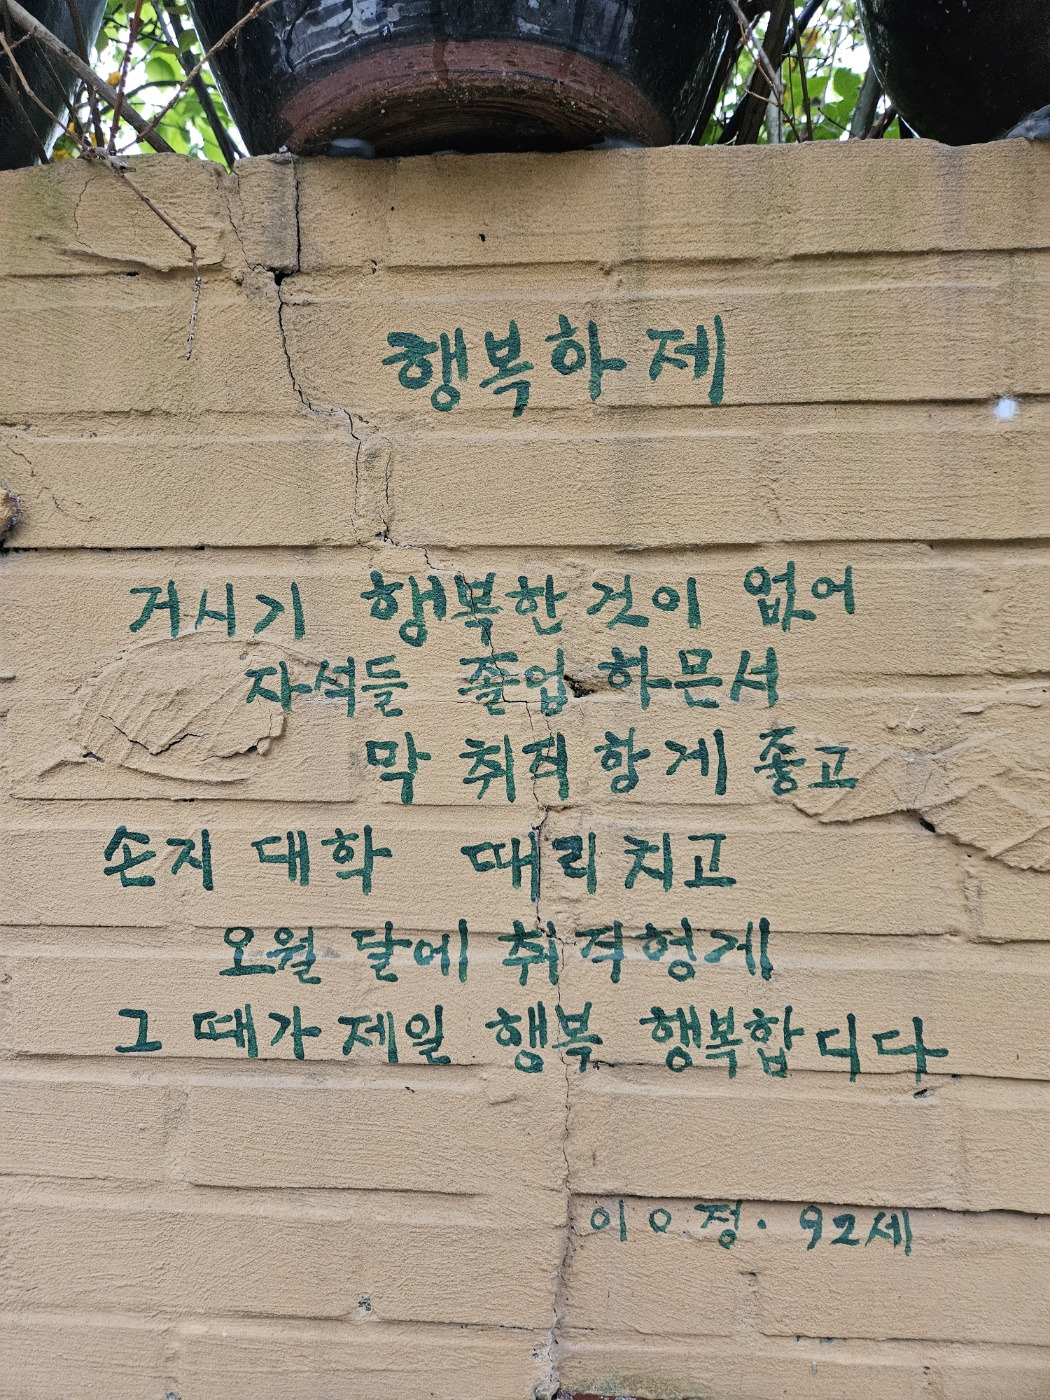 행복하제
거시기 행복한 것이 없어
자석들 졸업 하믄서
막 취직 항게 좋고
손지 대학 때리치고
오월 달에 취직헝게
그 때가 제일 행복 행복합디다
이ㅇ정. 92세